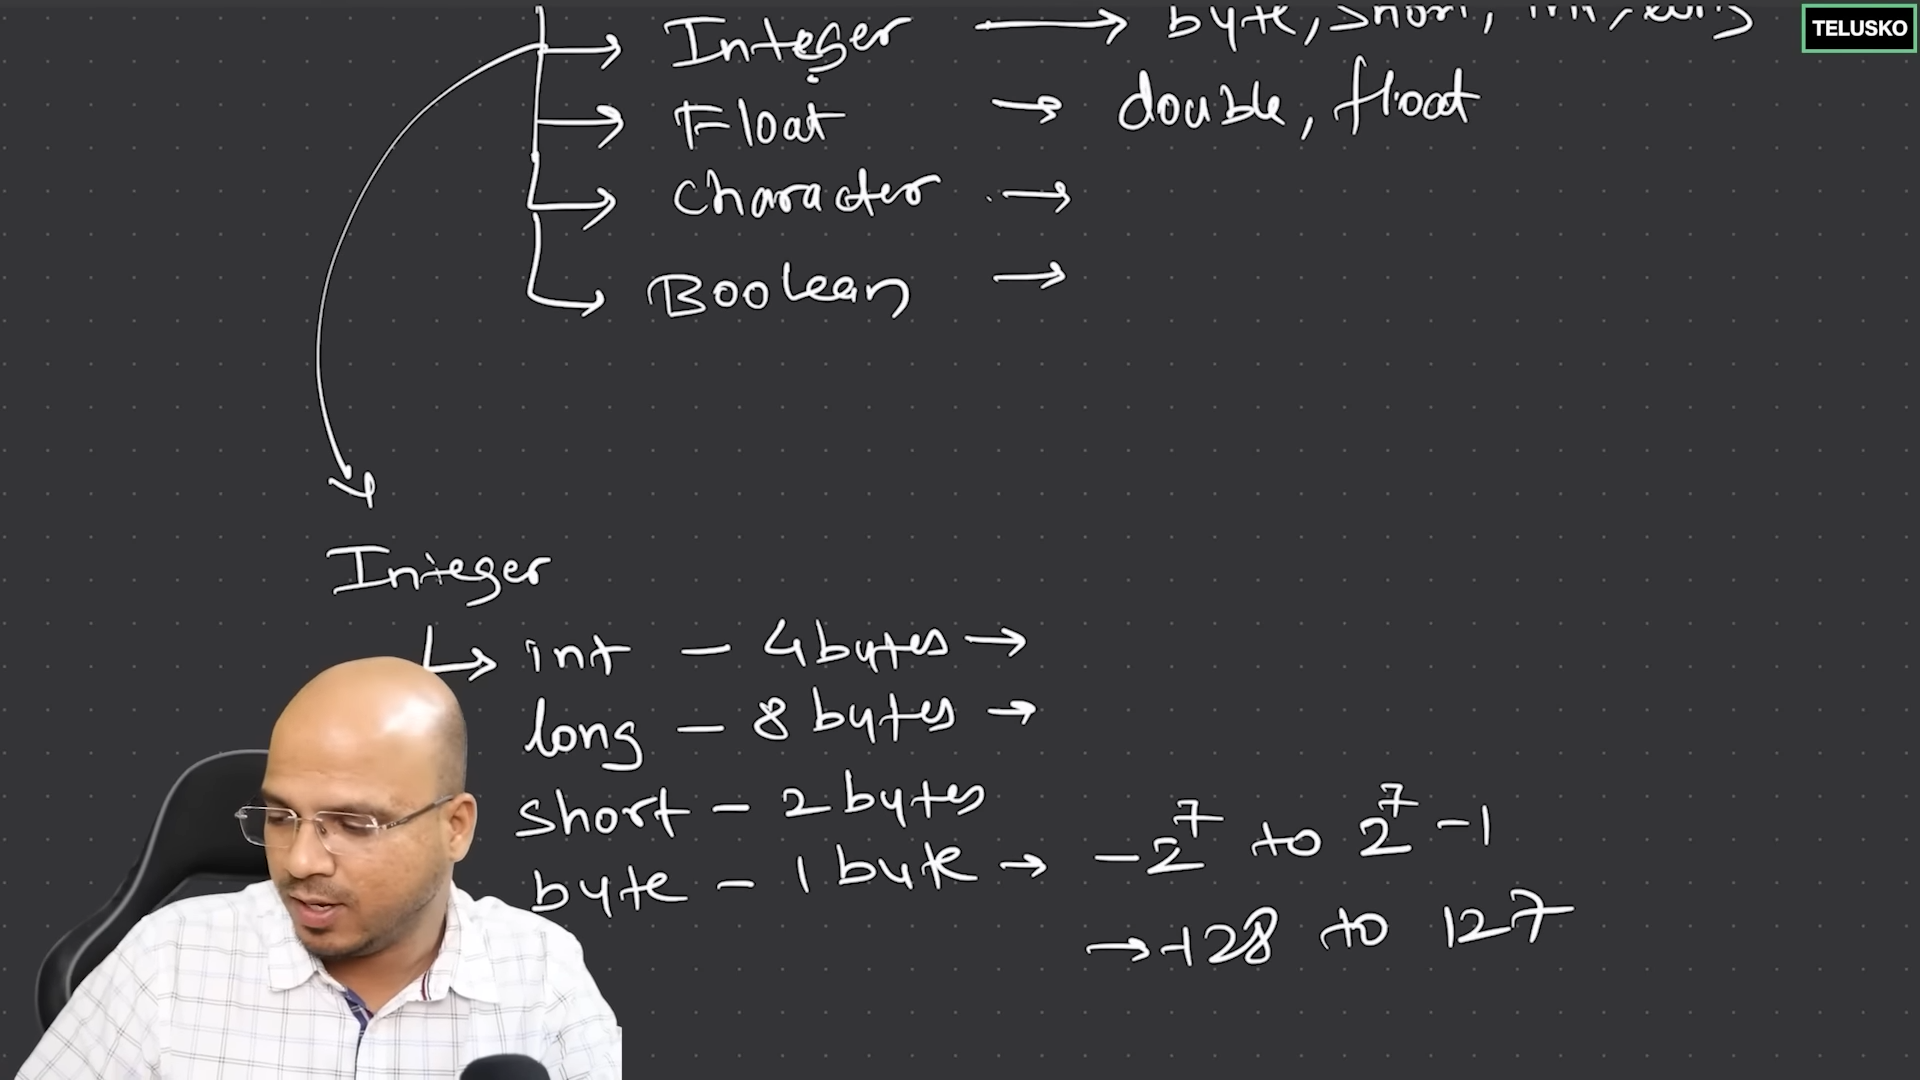 TELUSKO
Integer → byte, short, int, long
Float → double, float
Character →
Boolean →
Integer
int – 4 bytes →
long – 8 bytes →
short – 2 bytes
byte – 1 byte → -2⁷ to 2⁷ -1
→ -128 to 127